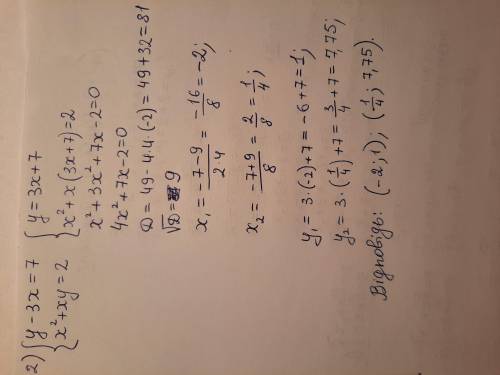 2) { y - 3x = 7 { y = 3x + 7
x² + xy = 2 x² + x(3x + 7) = 2
x² + 3x² + 7x - 2 = 0
4x² + 7x - 2 = 0
D = 49 - 4·4·(-2) = 49 + 32 = 81
√D = 9
x₁ = (-7 - 9)/(2·4) = -16/8 = -2;
x₂ = (-7 + 9)/8 = 2/8 = 1/4;
y₁ = 3·(-2) + 7 = -6 + 7 = 1;
y₂ = 3·(1/4) + 7 = 3/4 + 7 = 7,75;
Відповідь: (-2; 1); (1/4; 7,75).